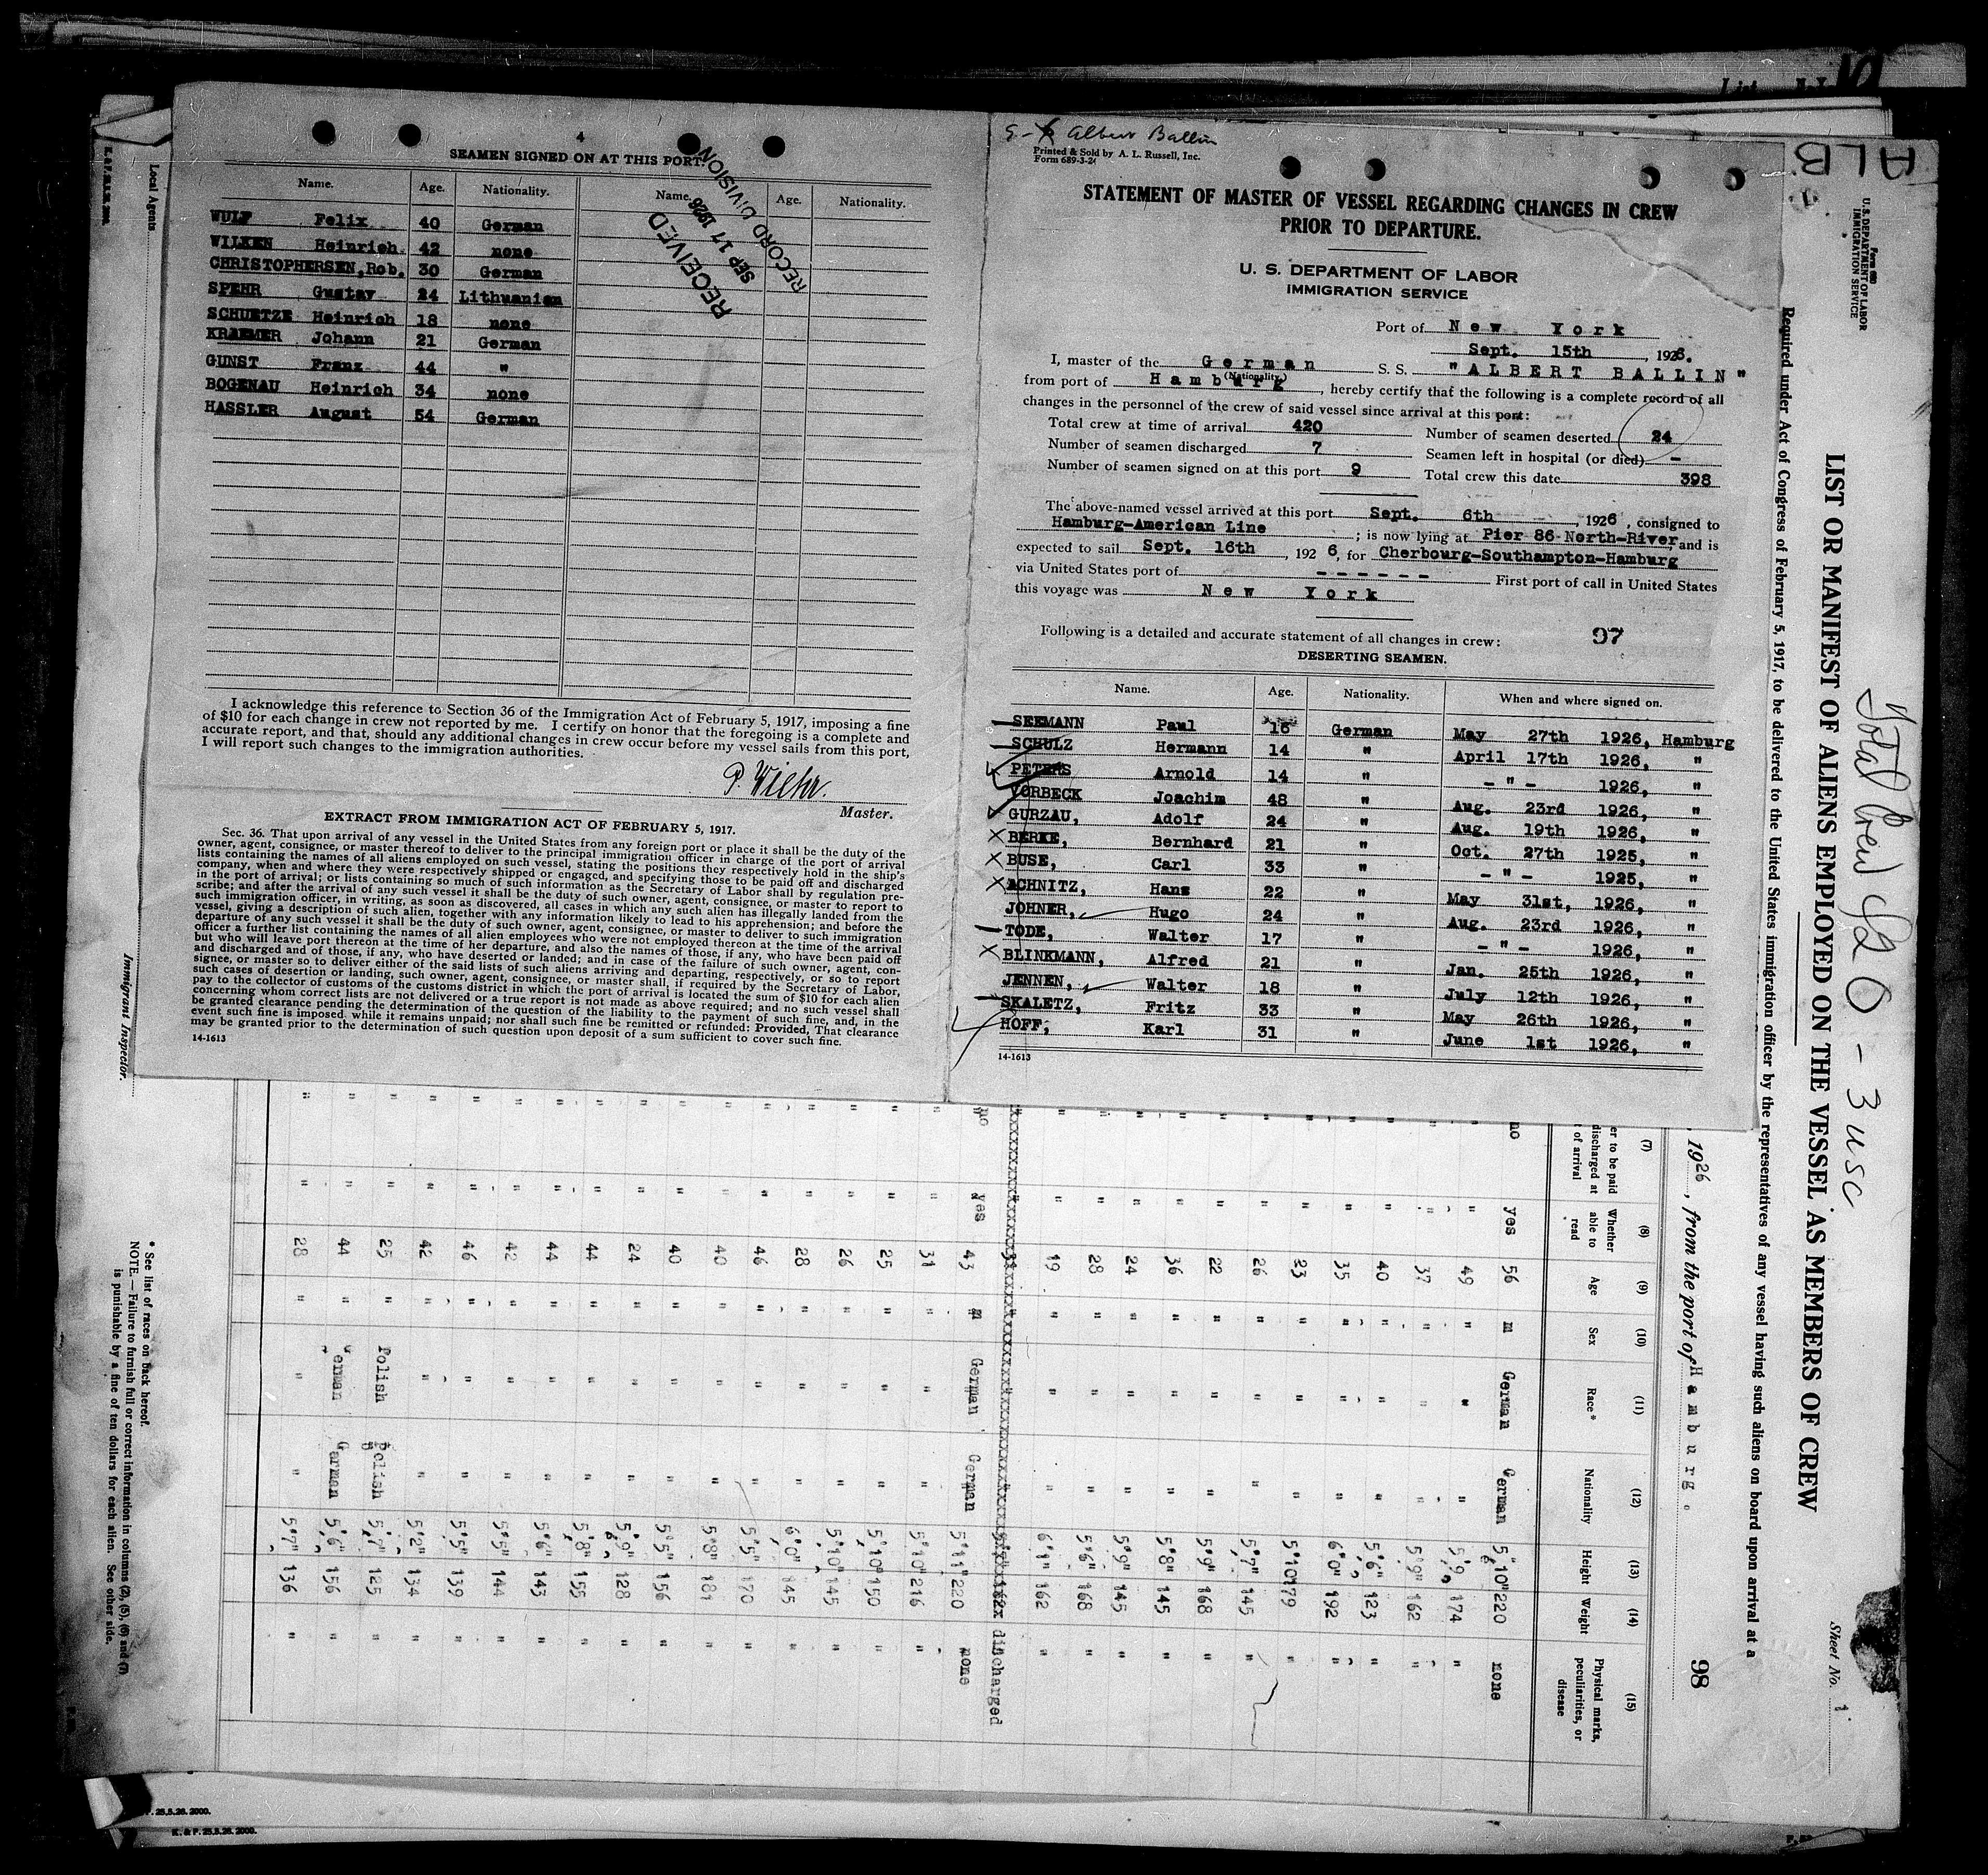 4
SEAMEN SIGNED ON AT THIS PORT.
RECEIVED
SEP 17 1926
RECORD DIVISION
Name. Age. Nationality. Name. Age. Nationality.
WULF Felix 40 German
WILKEN Heinrich 42 none
CHRISTOPHERSEN, Rob. 30 German
SPEHR Gustav 24 Lithuanian
SCHUETZE Heinrich 18 none
KRAEMER Johann 21 German
GUNST Franz 44 "
BOGENAU Heinrich 34 none
HASSLER August 54 German
I acknowledge this reference to Section 36 of the Immigration Act of February 5, 1917, imposing a fine
of $10 for each change in crew not reported by me. I certify on honor that the foregoing is a complete and
accurate report, and that, should any additional changes in crew occur before my vessel sails from this port,
I will report such changes to the immigration authorities.
P. Wiehr.
Master.
EXTRACT FROM IMMIGRATION ACT OF FEBRUARY 5, 1917.
Sec. 36. That upon arrival of any vessel in the United States from any foreign port or place it shall be the duty of the
owner, agent, consignee, or master thereof to deliver to the principal immigration officer in charge of the port of arrival
lists containing the names of all aliens employed on such vessel, stating the positions they respectively hold in the ship's
company, when and where they were respectively shipped or engaged, and specifying those to be paid off and discharged
in the port of arrival; or lists containing so much of such information as the Secretary of Labor shall by regulation pre-
scribe; and after the arrival of any such vessel it shall be the duty of such owner, agent, consignee, or master to report to
such immigration officer, in writing, as soon as discovered, all cases in which any such alien has illegally landed from the
vessel, giving a description of such alien, together with any information likely to lead to his apprehension; and before the
departure of any such vessel it shall be the duty of such owner, agent, consignee, or master to deliver to such immigration
officer a further list containing the names of all alien employees who were not employed thereon at the time of the arrival
but who will leave port thereon at the time of her departure, and also the names of those, if any, who have been paid off
and discharged and of those, if any, who have deserted or landed; and in case of the failure of such owner, agent, con-
signee, or master so to deliver either of the said lists of such aliens arriving and departing, respectively, or so to report
such cases of desertion or landing, such owner, agent, consignee, or master shall, if required by the Secretary of Labor,
pay to the collector of customs of the customs district in which the port of arrival is located the sum of $10 for each alien
concerning whom correct lists are not delivered or a true report is not made as above required; and no such vessel shall
be granted clearance pending the determination of the question of the liability to the payment of such fine, and, in the
event such fine is imposed while it remains unpaid; nor shall such fine be remitted or refunded: Provided, That clearance
may be granted prior to the determination of such question upon deposit of a sum sufficient to cover such fine.
14-1613
Albert Ballin
Printed & Sold by A. L. Russell, Inc.
Form 689-3-24
STATEMENT OF MASTER OF VESSEL REGARDING CHANGES IN CREW
PRIOR TO DEPARTURE.
U. S. DEPARTMENT OF LABOR
IMMIGRATION SERVICE
Port of New York
Sept. 15th, 1926.
I, master of the German S. S. "ALBERT BALLIN"
(Nationality)
from port of Hamburg, hereby certify that the following is a complete record of all
changes in the personnel of the crew of said vessel since arrival at this port:
Total crew at time of arrival 420 Number of seamen deserted 24
Number of seamen discharged 7 Seamen left in hospital (or died) -
Number of seamen signed on at this port 9 Total crew this date 398
The above-named vessel arrived at this port Sept. 6th, 1926, consigned to
Hamburg-American Line; is now lying at Pier 86 North-River, and is
expected to sail Sept. 16th, 1926, for Cherbourg-Southampton-Hamburg
via United States port of - - - - - - First port of call in United States
this voyage was New York
Following is a detailed and accurate statement of all changes in crew: 97
DESERTING SEAMEN.
Name. Age. Nationality. When and where signed on.
SEEMANN Paul 16 German May 27th 1926, Hamburg
SCHULZ Hermann 14 " April 17th 1926, "
PETERS Arnold 14 " - " - 1926, "
VORBECK Joachim 48 " Aug. 23rd 1926, "
GURZAU, Adolf 24 " Aug. 19th 1926, "
BERKE, Bernhard 21 " Oct. 27th 1925, "
BUSE, Carl 33 " - " - 1925, "
ACHNITZ, Hans 22 " May 31st, 1926, "
JOHNER, Hugo 24 " Aug. 23rd 1926, "
TODE, Walter 17 " - " - 1926, "
BLINKMANN, Alfred 21 " Jan. 25th 1926, "
JENNEN, Walter 18 " July 12th 1926, "
SKALETZ, Fritz 33 " May 26th 1926, "
HOFF, Karl 31 " June 1st 1926, "
14-1613
ALB
Form 680
U. S. DEPARTMENT OF LABOR
IMMIGRATION SERVICE
Total Crew 420 - 3 usc
Sheet No. 1
LIST OR MANIFEST OF ALIENS EMPLOYED ON THE VESSEL AS MEMBERS OF CREW
Required under Act of Congress of February 5, 1917, to be delivered to the United States immigration officer by the representatives of any vessel having such aliens on board upon arrival at a
, 1926, from the port of Hamburg.
98
(7) (8) (9) (10) (11) (12) (13) (14) (15)
er to be paid
discharged at
t of arrival
Whether
able to
read
Age
Sex
Race*
Nationality
Height
Weight
Physical marks,
peculiarities, or
disease
no yes 56 m German German 5'10" 220 none
" " 49 " " " 5'9" 174 "
" " 37 " " " 5'9" 162 "
" " 40 " " " 5'6" 123 "
" " 35 " " " 6'0" 192 "
" " 23 " " " 5'10 179 "
" " 26 " " " 5'7" 145 "
" " 22 " " " 5'9" 168 "
" " 36 " " " 5'8" 145 "
" " 24 " " " 5'9" 145 "
" " 28 " " " 5'6" 168 "
" " 19 " " " 6'1" 162 "
discharged
no yes 43 m German German 5'11" 220 none
" " 31 " " " 5'10" 216 "
" " 25 " " " 5'10" 150 "
" " 26 " " " 5'10" 145 "
" " 28 " " " 6'0" 145 "
" " 46 " " " 5'5" 170 "
" " 40 " " " 5'8" 181 "
" " 40 " " " 5'5" 156 "
" " 24 " " " 5'9" 128 "
" " 44 " " " 5'8" 155 "
" " 44 " " " 5'6" 143 "
" " 42 " " " 5'5" 144 "
" " 46 " " " 5'5" 139 "
" " 42 " " " 5'2" 134 "
" " 25 " Polish Polish 5'7" 125 "
" " 44 " German German 5'6" 156 "
" " 28 " " " 5'7" 136 "
* See list of races on back hereof.
NOTE.—Failure to furnish full or correct information in columns (2), (5), (6) and (7)
is punishable by a fine of ten dollars for each alien. See other side.
Local Agents
Immigrant Inspector.
P. 25.5.26. 2000.
K. & P. 25.5.26. 2000.